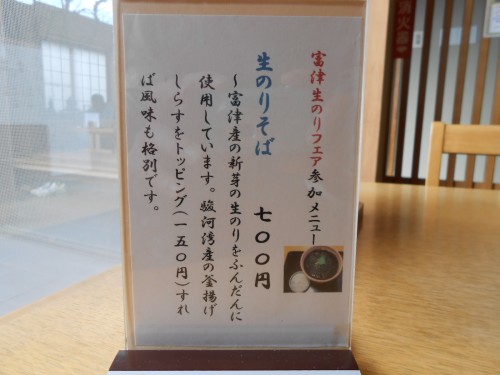 富津生のりフェア参加メニュー
生のりそば　七〇〇円
～富津産の新芽の生のりをふんだんに
使用しています。駿河湾産の釜揚げ
しらすをトッピング(一五〇円)すれ
ば風味も格別です。
消火器